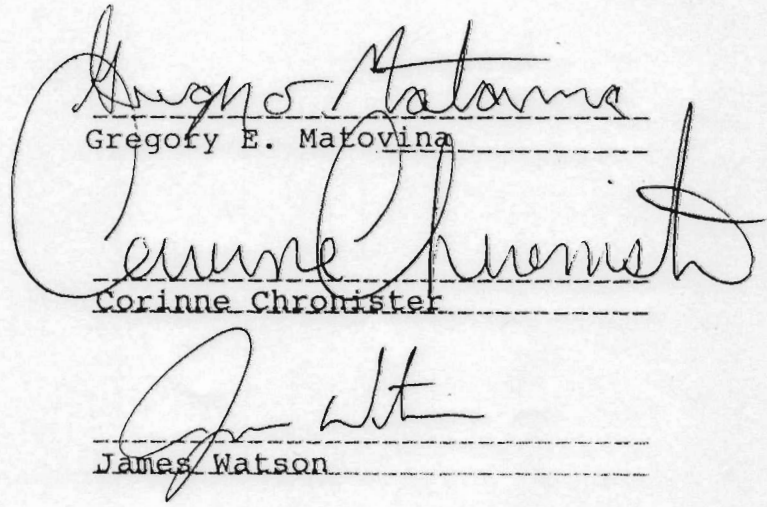 Gregory E. Matovina
Gregory E. Matovina
Corinne Chronister
Corinne Chronister
James Watson
James Watson